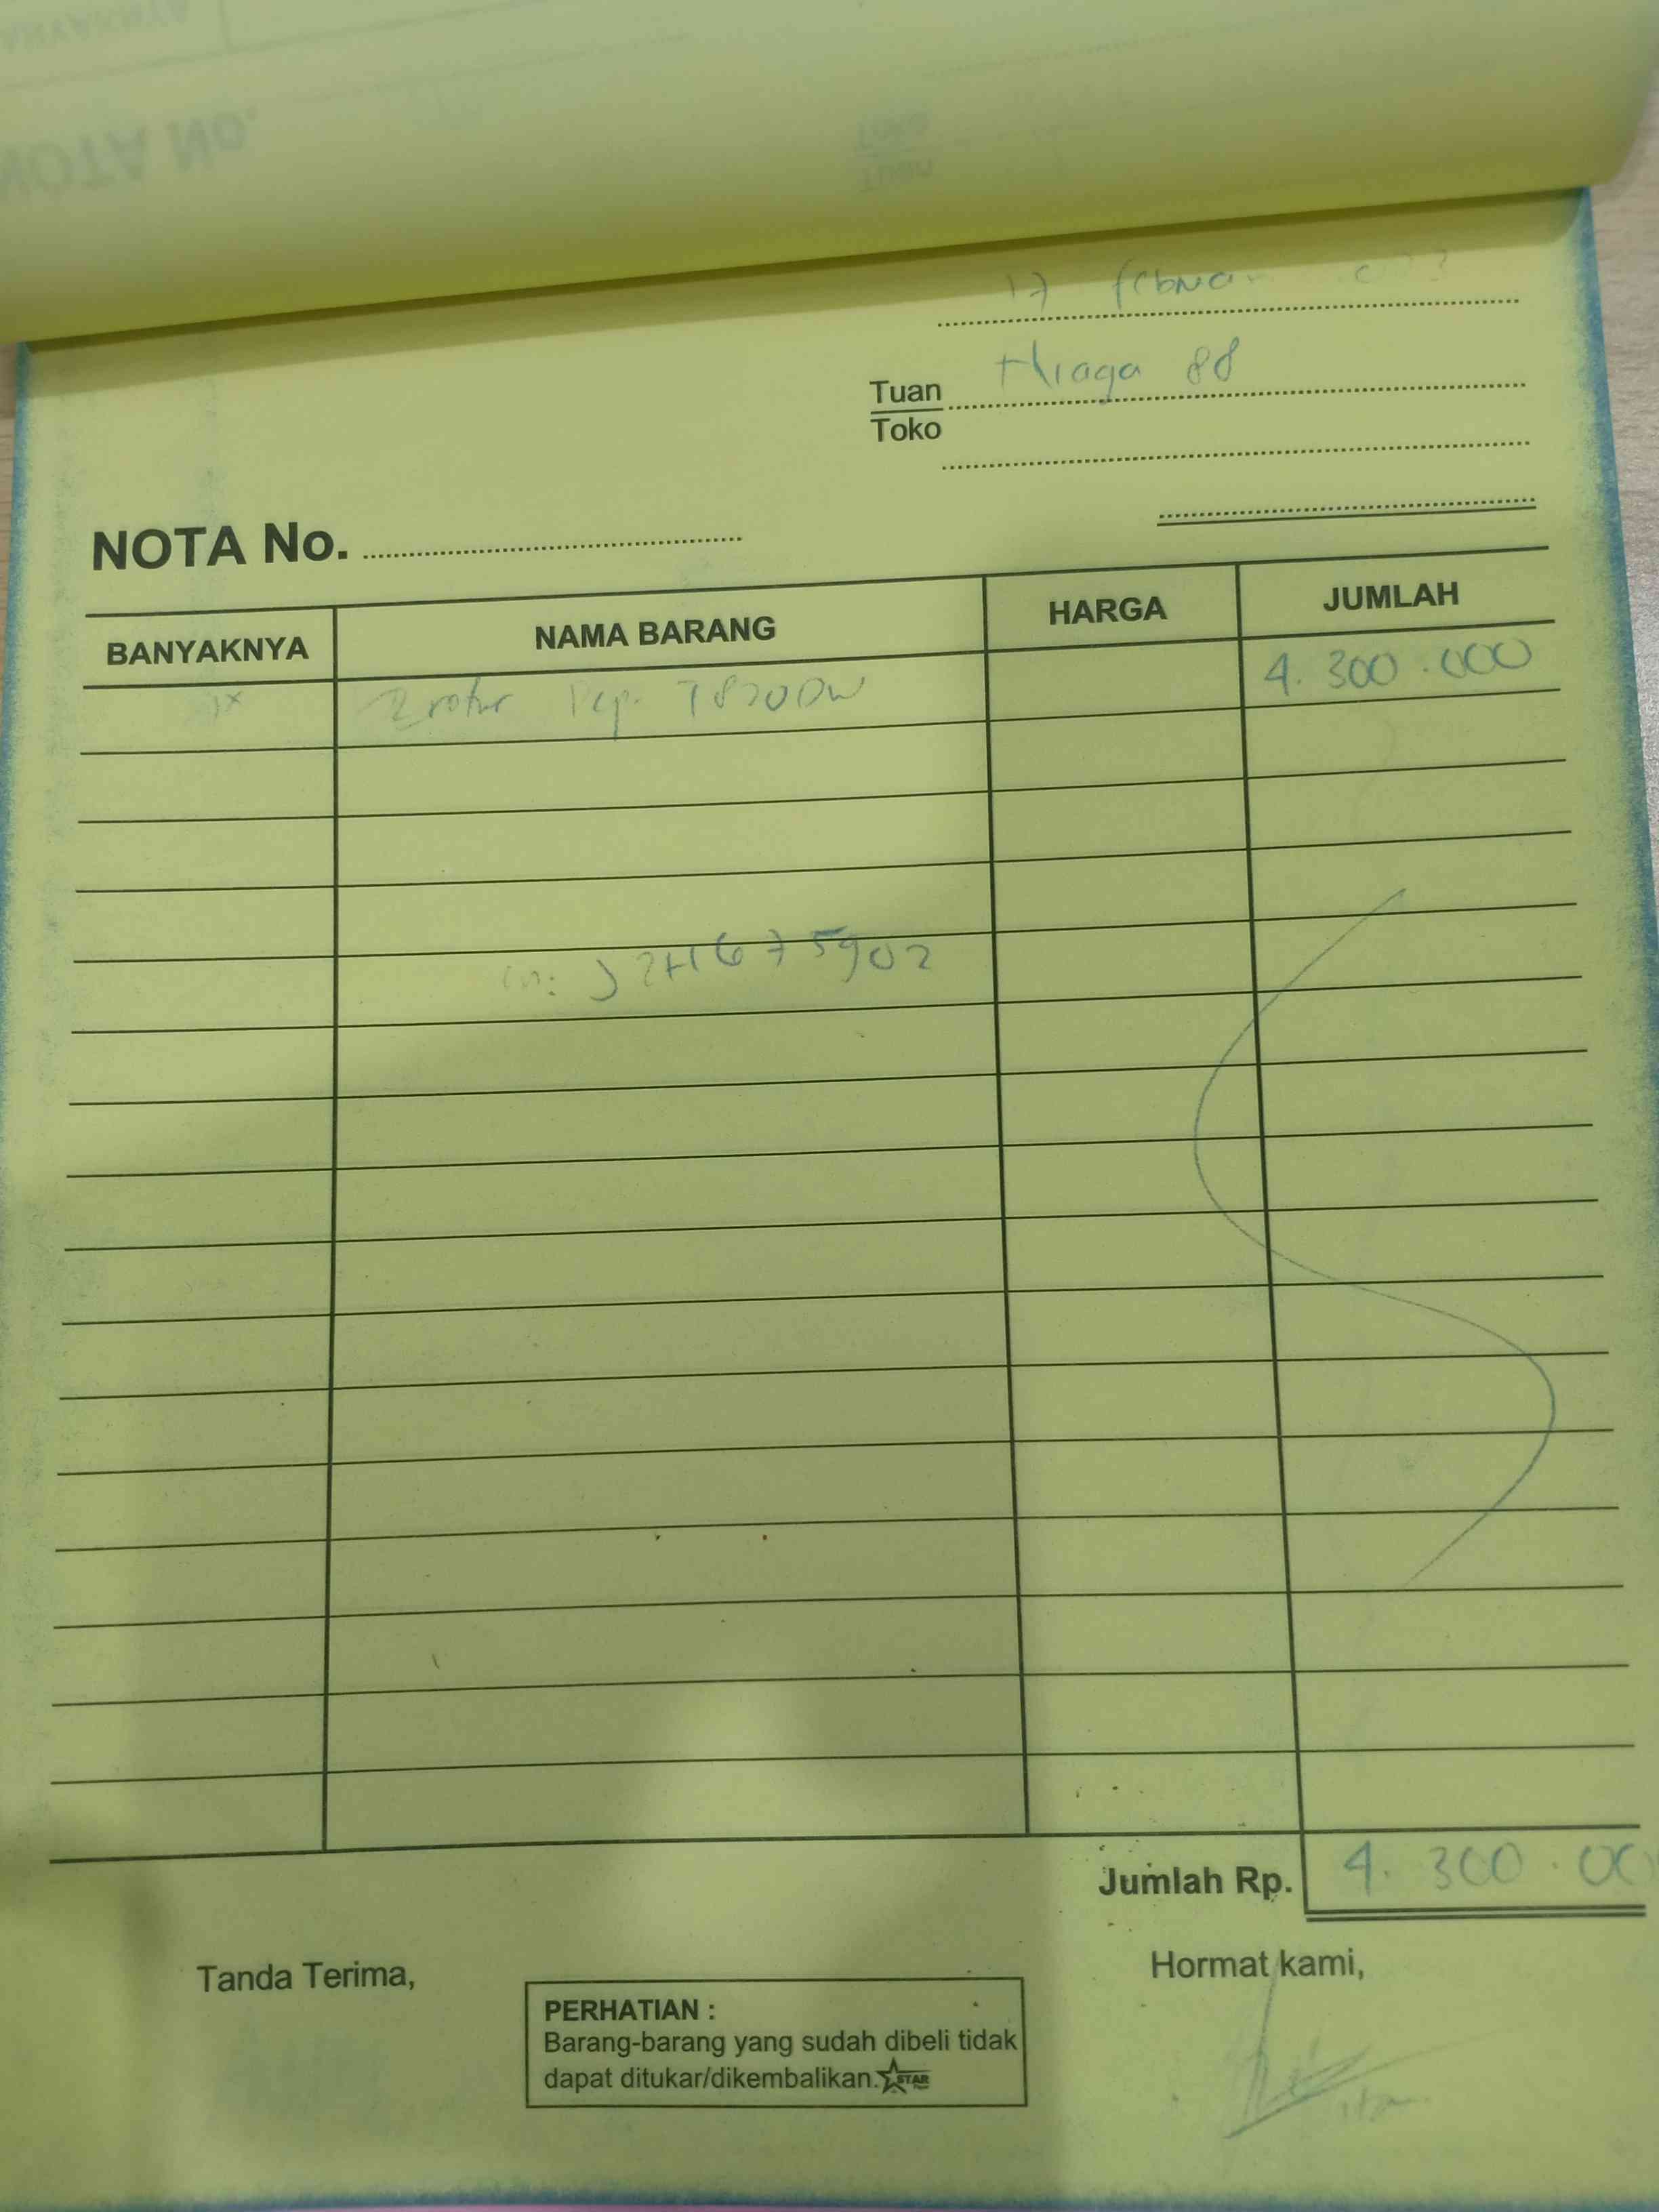 17
Niaga 88
Tuan
Toko
NOTA No.
BANYAKNYA NAMA BARANG HARGA JUMLAH
1x T820DW 4.300.000
J2H675902
Jumlah Rp. 4.300.00
Tanda Terima, Hormat kami,
PERHATIAN :
Barang-barang yang sudah dibeli tidak
dapat ditukar/dikembalikan. STAR